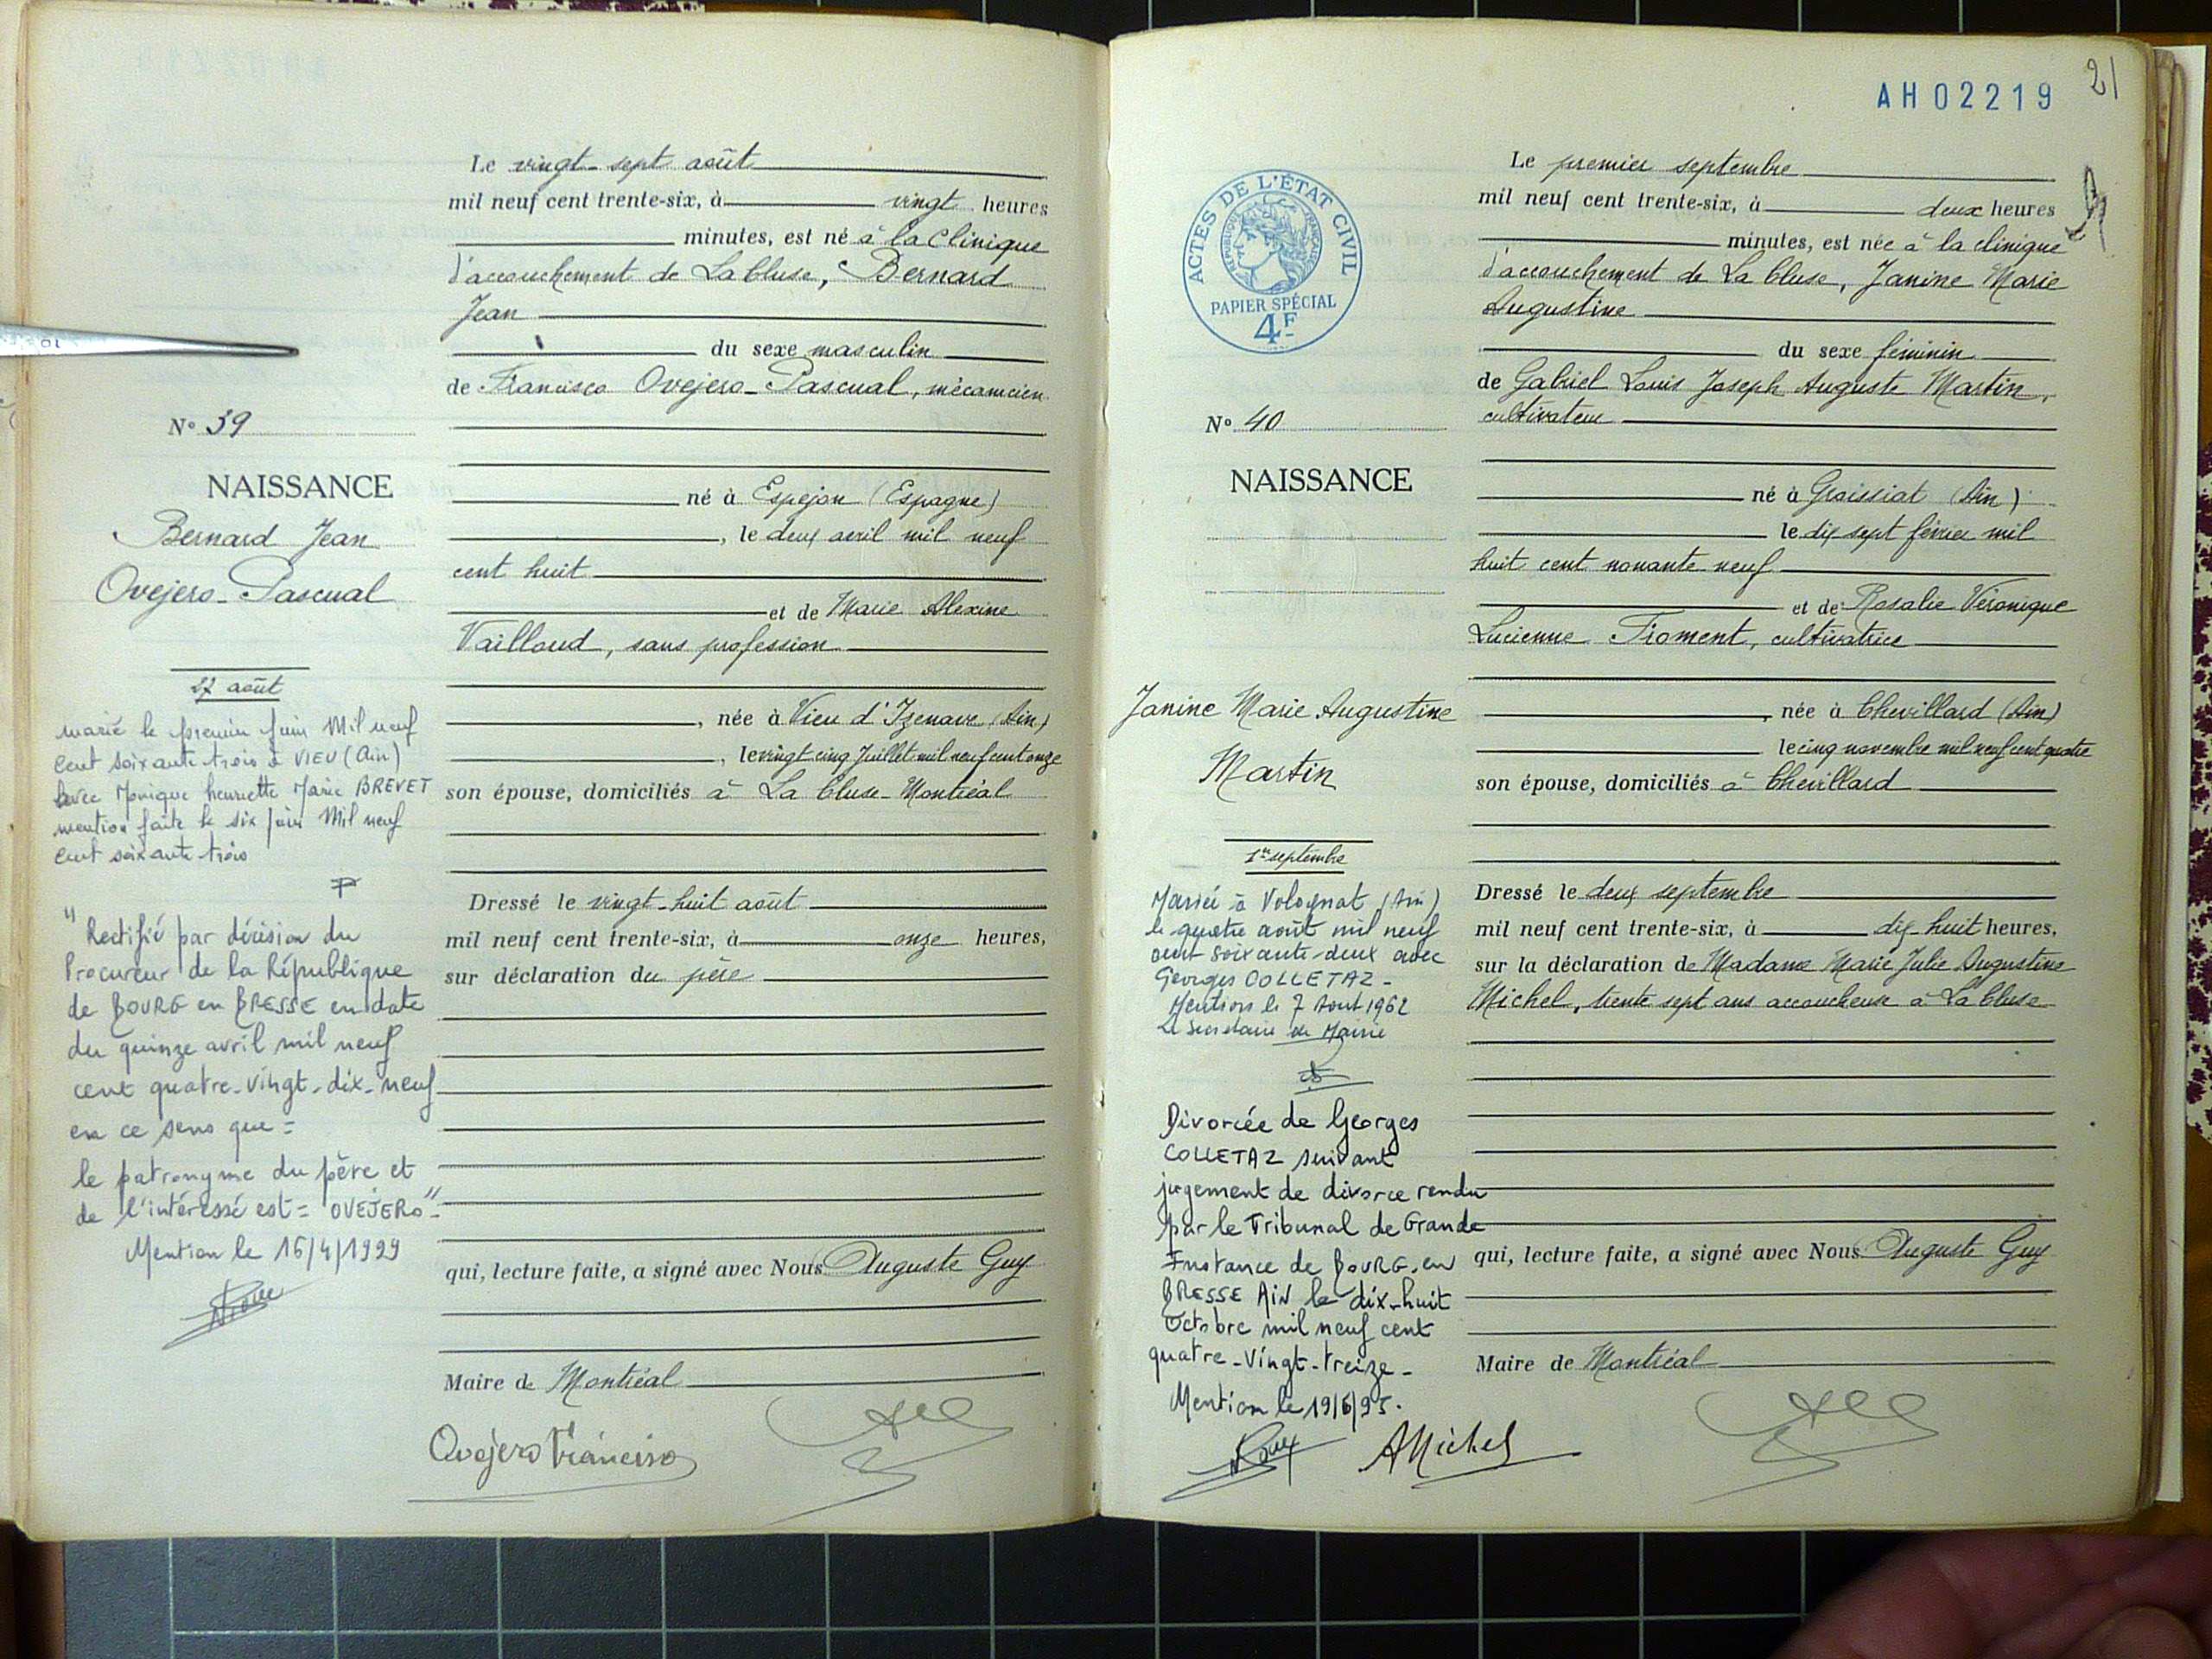 Le vingt-sept août
mil neuf cent trente-six, à vingt heures
minutes, est né à la Clinique
d'accouchement de La Cluse, Bernard
Jean
du sexe masculin
de Francisco Ovejero-Pascual, mécanicien
né à Espejon (Espagne)
, le deux avril mil neuf
cent huit
et de Marie Alexine
Vailloud, sans profession
, née à Vieu d'Izenave (Ain)
, le vingt cinq Juillet mil neuf cent onze
son épouse, domiciliés à La Cluse-Montréal
Dressé le vingt-huit août
mil neuf cent trente-six, à onze heures,
sur déclaration du père
qui, lecture faite, a signé avec Nous Auguste Guy
Maire de Montréal
Ovejero Francisco
N° 39
NAISSANCE
Bernard Jean
Ovejero-Pascual
27 août
marié le premier juin Mil neuf
cent soixante trois à VIEU (Ain)
avec Monique henriette Marie BREVET
mention faite le six juin Mil neuf
cent soixante trois
"Rectifié par décision du
Procureur de la République
de BOURG en BRESSE en date
du quinze avril mil neuf
cent quatre-vingt-dix-neuf
en ce sens que =
le patronyme du père et
de l'intéressé est = OVEJERO"-
Mention le 16/4/1999
AH02219
21
ACTES DE L'ÉTAT CIVIL
RÉPUBLIQUE FRANÇAISE
PAPIER SPÉCIAL
4F
N° 40
NAISSANCE
Janine Marie Augustine
Martin
1er septembre
Mariée à Volognat (Ain)
le quatre août mil neuf
cent soixante-deux avec
Georges COLLETAZ -
Mention le 7 Aout 1962
Le Secrétaire de Mairie
Divorcée de Georges
COLLETAZ suivant
jugement de divorce rendu
par le Tribunal de Grande
Instance de BOURG-en
BRESSE AIN le dix-huit
Octobre mil neuf cent
quatre-Vingt-treize-
Mention le 19/6/95.
Le premier septembre
mil neuf cent trente-six, à deux heures
minutes, est née à la clinique
d'accouchement de La Cluse, Janine Marie
Augustine
du sexe féminin
de Gabriel Louis Joseph Auguste Martin,
cultivateur
né à Graissiat (Ain)
le dix sept février mil
huit cent nonante neuf
et de Rosalie Véronique
Lucienne Froment, cultivatrice
, née à Chevillard (Ain)
le cinq novembre mil neuf cent quatre
son épouse, domiciliés à Chevillard
Dressé le deux septembre
mil neuf cent trente-six, à dix huit heures,
sur la déclaration de Madame Marie Julie Augustine
Michel, trente sept ans accoucheuse à La Cluse
qui, lecture faite, a signé avec Nous Auguste Guy
Maire de Montréal
AMichel